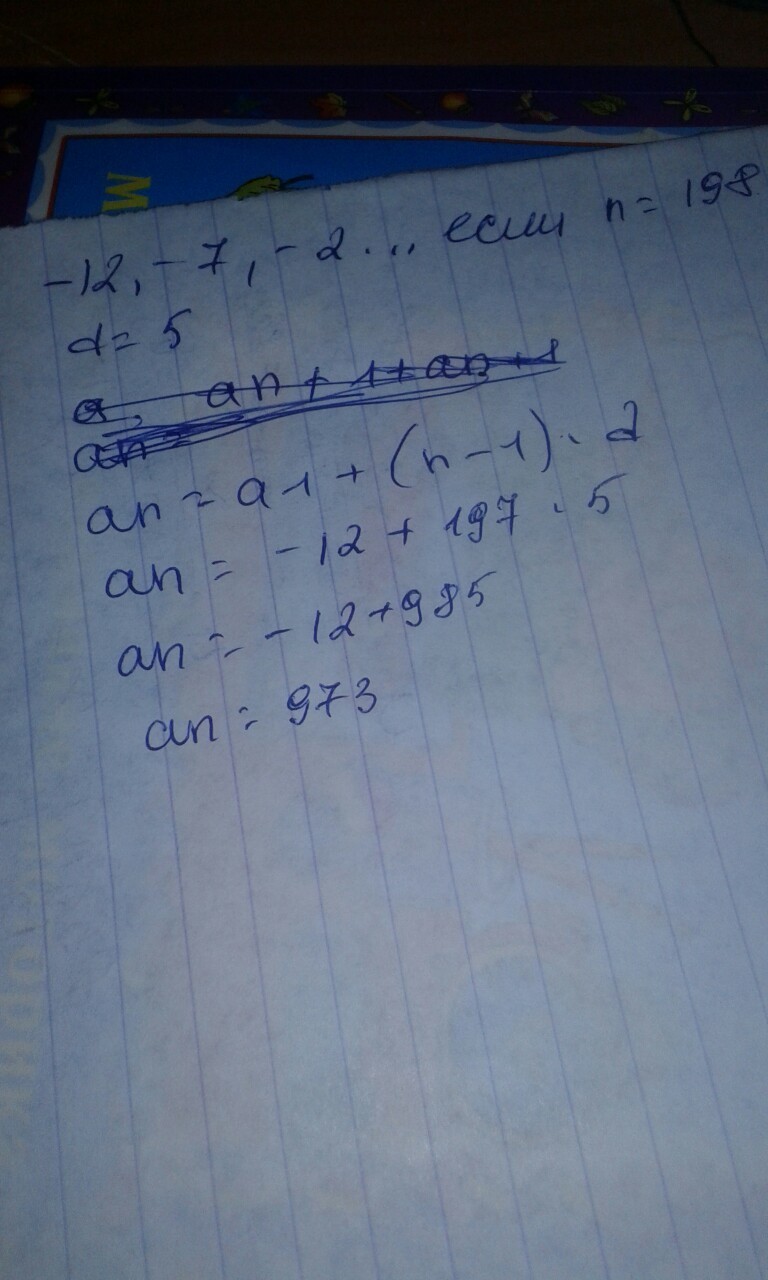 М
-12, -7, -2... если n = 198
d = 5
a, an + 1 + an + 1
an =
an = a1 + (n - 1) · d
an = -12 + 197 · 5
an = -12 + 985
an = 973